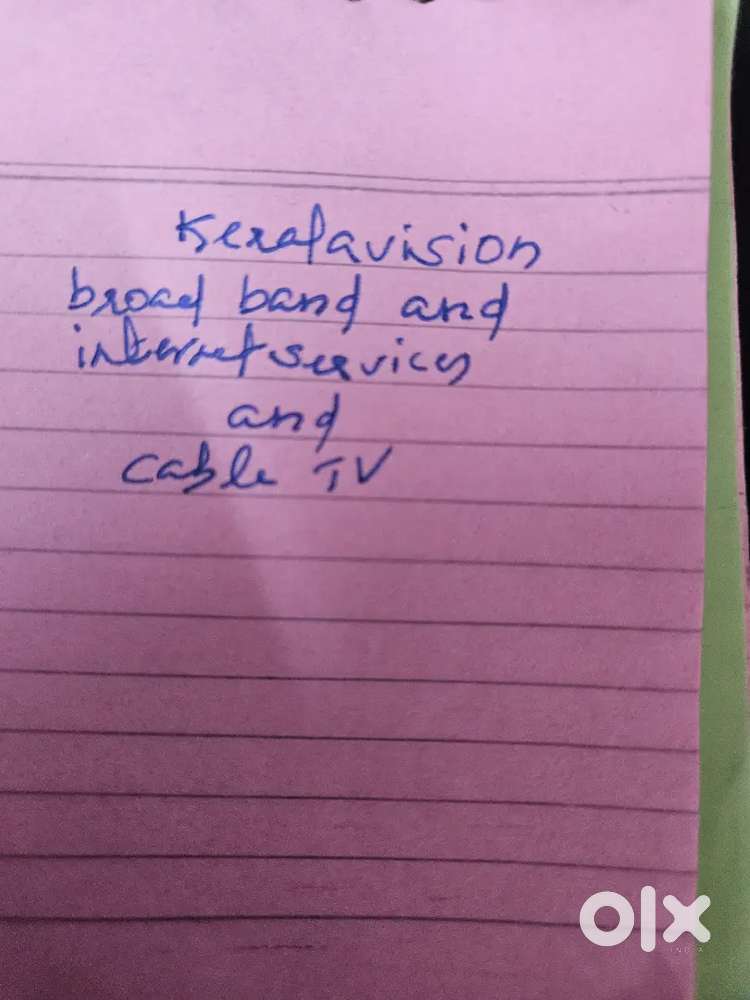 Keralavision
broad band and
internet services
and
Cable TV
olx
INDIA